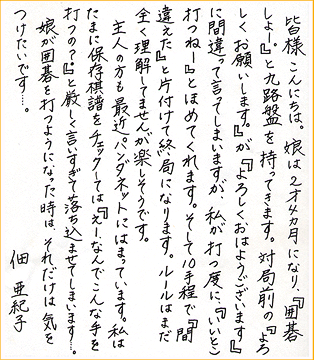 皆様こんにちは。娘は2才4カ月になり、『囲碁
しよー。』と九路盤を持ってきます。対局前の『よろ
しくお願いします。』が『よろしくおはようございます』
に間違って言ってしまいますが、私が打つ度に、『いいと
打つねー』とほめてくれます。そして10手程で『間
違えた』と片付けて終局になります。ルールはまだ
全く理解してませんが楽しそうです。
主人の方も最近パンダネットにはまっています。私は
たまに保存棋譜をチェックしては『えーなんでこんな手を
打つの?』と厳しく言いすぎて落ち込ませてしまいます…。
娘が囲碁を打つようになった時は、それだけは気を
つけたいです…。
佃 亜紀子